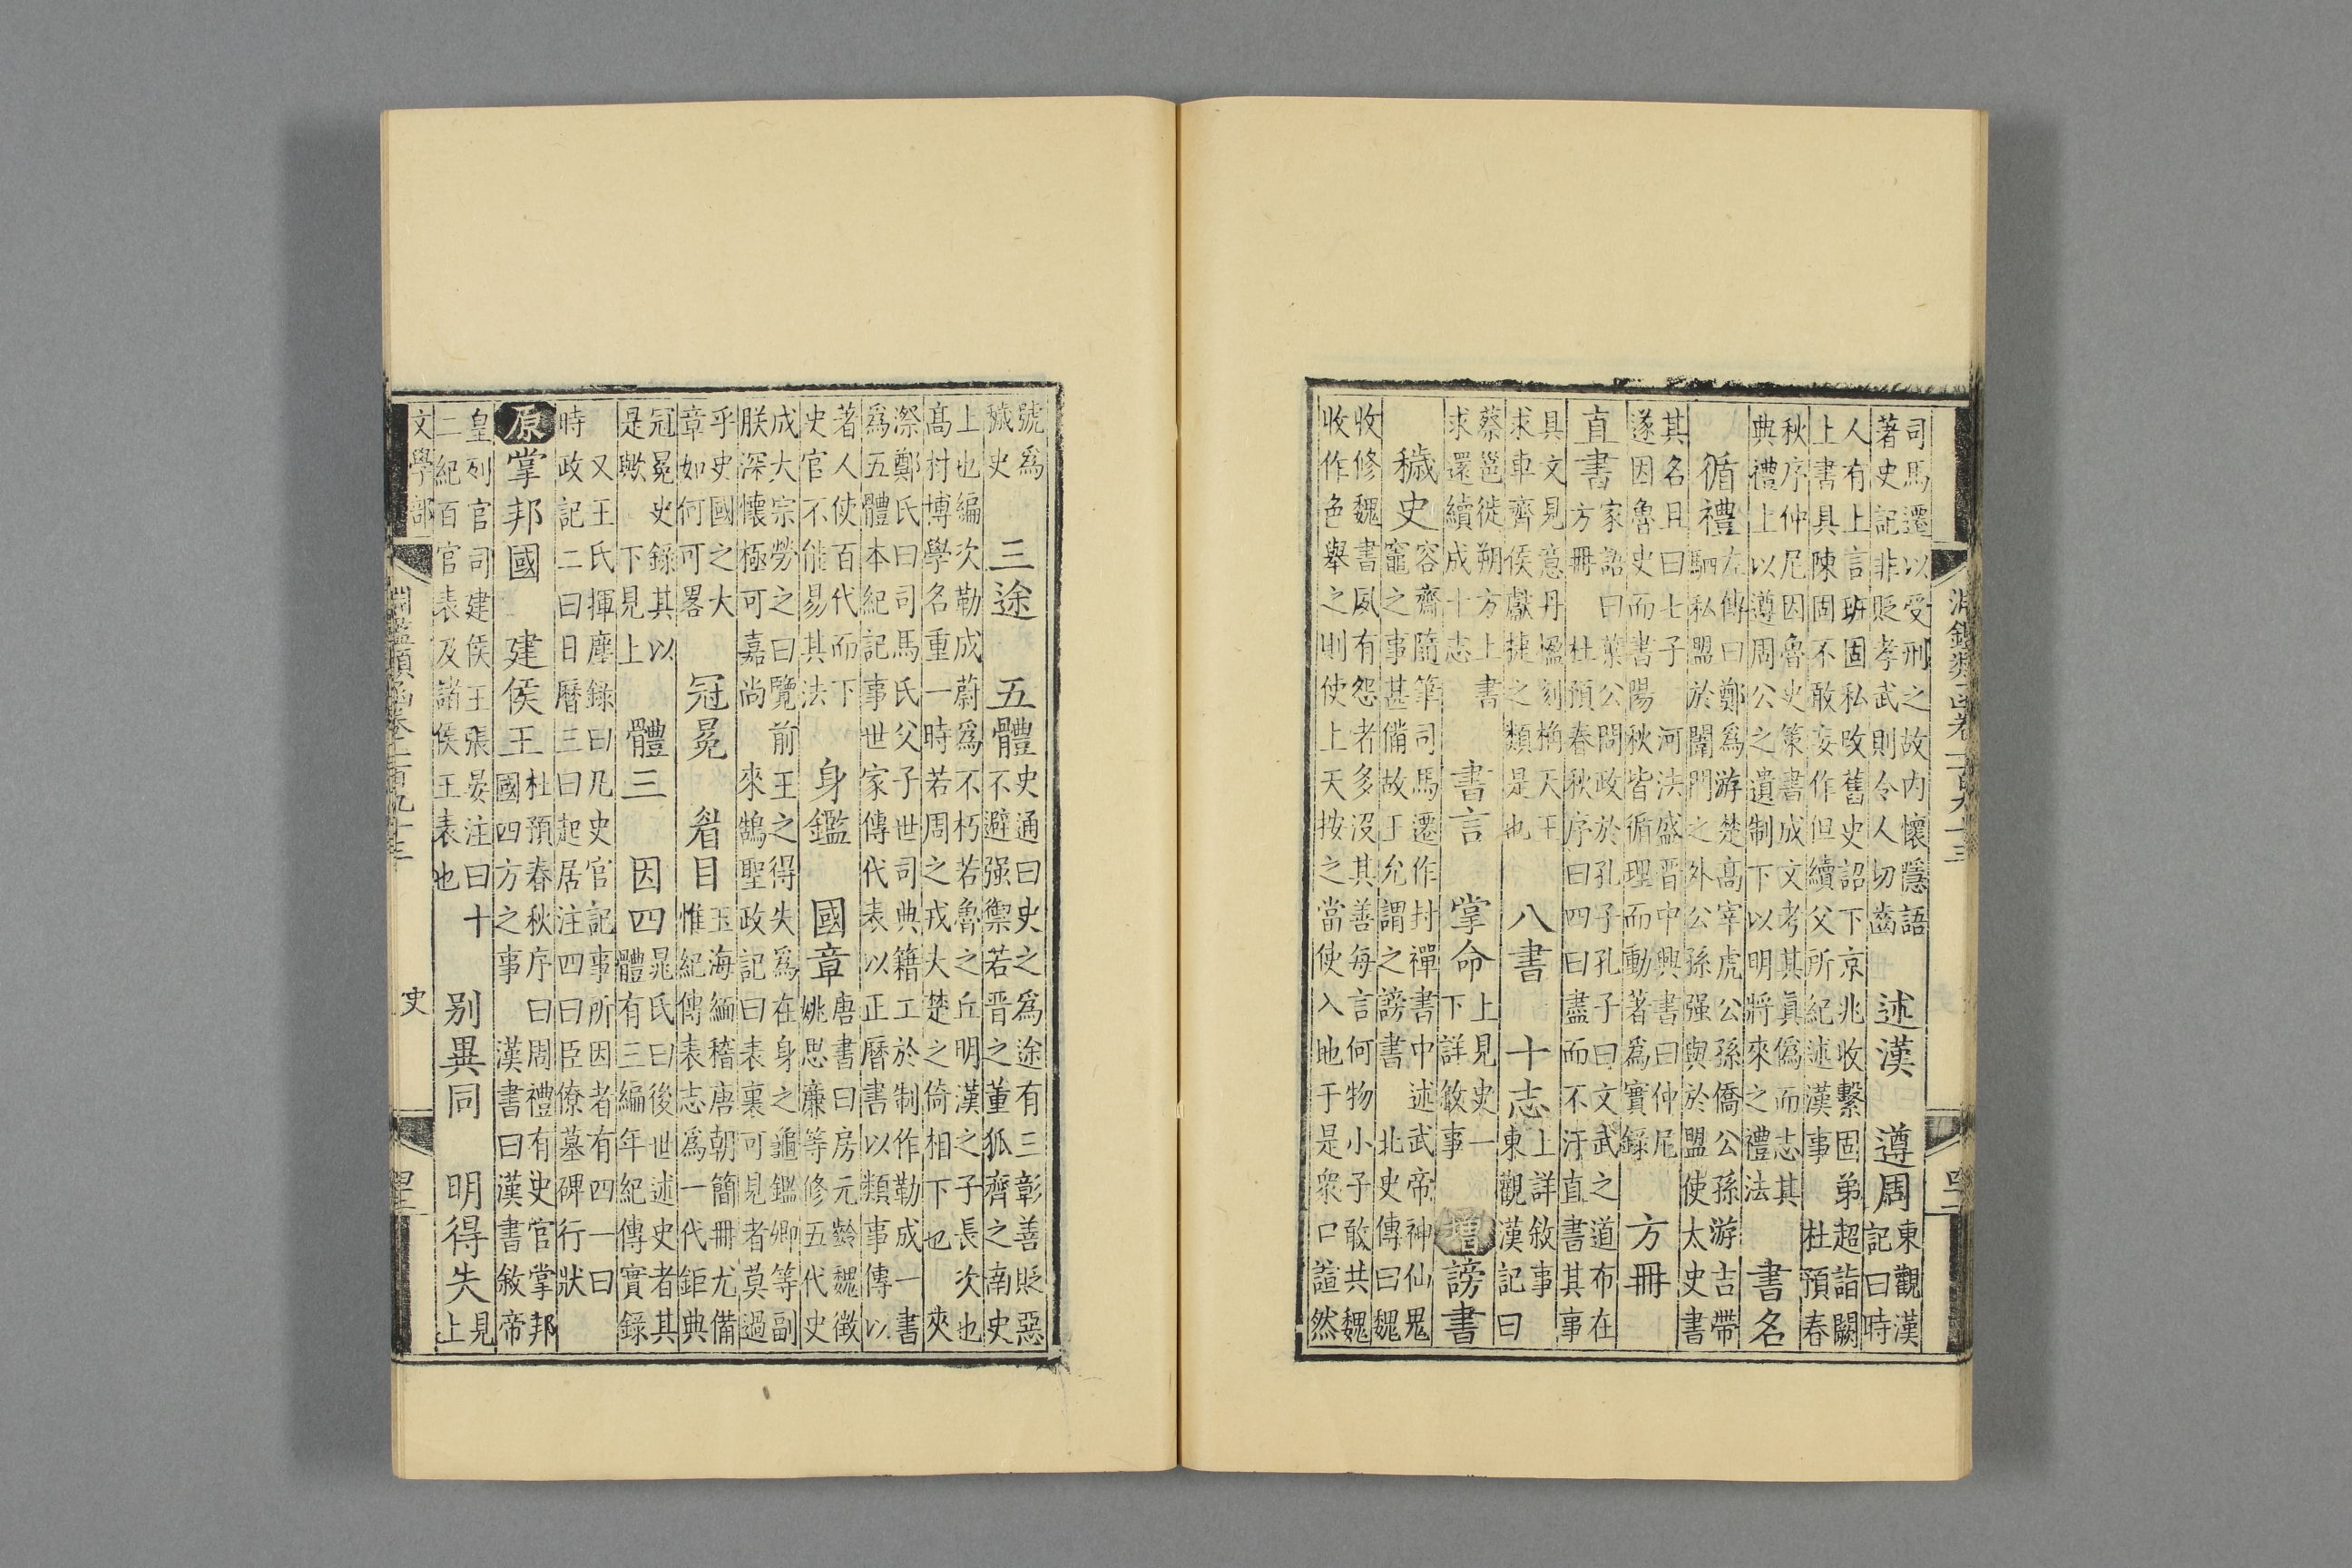 淵鑑類函卷一百九十三
司馬遷以受刑之故内懷隱語
著史記非貶孝武則令人切齒
述漢　遵周
東觀漢
記曰時
人有上言班固私改舊史詔下京兆收繫固弟超詣闕
上書具陳固不敢妄作但續父所紀述漢事　杜預春
秋序仲尼因魯史策書成文考其眞偽而志其
典禮上以遵周公之遺制下以明將來之禮法
書名
循禮
左傳曰鄭爲游楚髙宰虎公孫僑公孫游吉帶
駟私盟於閨門之外公孫强與於盟使太史書
其名且曰七子　河法盛晋中興書曰仲尼
遂因魯史而書陽秋皆循理而動著爲實錄
方冊
直書
家語曰葉公問政於孔子孔子曰文武之道布在
方冊　杜預春秋序曰四曰盡而不汙直書其事
具文見意丹楹刻桷天王
求車齊侯獻捷之類是也
八書　十志
上詳敘事
東觀漢記曰
蔡邕徙朔方上書
求還續成十志
書言　掌命
上見史一
下詳敘事
增　謗書
穢史
容齋隨筆司馬遷作封禪書中述武帝神仙鬼
竈之事甚備故王允謂之謗書　北史傳曰魏
收修魏書夙有怨者多沒其善每言何物小子敢共魏
收作色舉之則使上天按之當使入地于是衆口諠然
號爲
穢史
三途　五體
史通曰史之爲途有三彰善貶惡
不避强禦若晋之董狐齊之南史
上也編次勒成蔚爲不朽若魯之丘明漢之子長次也
髙才博學名重一時若周之
大楚之倚相下也　夾
漈鄭氏曰司馬氏父子世司典籍工於制作勒成一書
爲五體本紀記事世家傳代表以正曆書以類事傳以
著人使百代而下
史官不能易其法
身鑑　國章
唐書曰房元齡魏徵
姚思廉等修五代史
成大宗勞之曰覽前王之得失爲在身之龜鑑卿等副
朕深懷極可嘉尚　來鵠聖政記曰表裏可見者莫過
乎史國之大
章如何可畧
冠冕　眉目
玉海緬稽唐朝簡冊尤備
惟紀傳表志爲一代鉅典
冠冕史錄其以
是歟　下見上
體三　因四
晁氏曰後世述史者其
體有三編年紀傳實錄
又王氏揮麈錄曰凡史官記事所因者有四一曰
時政記二曰日曆三曰起居注四曰臣僚墓碑行狀
原　掌邦國　建侯王
杜預春秋序曰周禮有史官掌邦
國四方之事　漢書曰漢書敘帝
皇列官司建侯王張晏注曰十
二紀百官表及諸侯王表也
别異同　明得失
見
上
文學部
淵鑑類函卷一百九十三
史